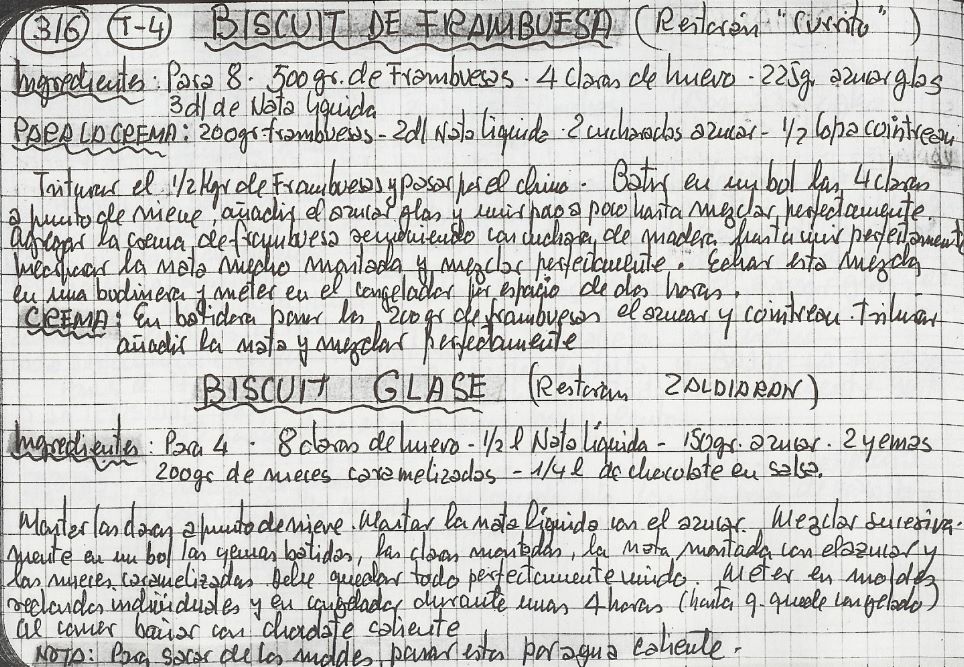 316 T-4 BISCUIT DE FRAMBUESA (Restorán "Currito")
Ingredientes: Para 8 · 500gr. de Frambuesas · 4 Claras de huevo · 225g. azucar glas
3 dl de Nata líquida
PARA LA CREMA: 200gr frambuesas - 2dl Nata líquida · 2 cucharadas azucar - 1/2 Copa cointreau
Triturar el 1/2 Kgr de Frambuesas y pasar por el chino. Batir en un bol las 4 claras
a punto de nieve, añadir el azucar glas y unir poco a poco hasta mezclar perfectamente.
Agregar la crema de frambuesa removiendo con cuchara de madera hasta unir perfectamente
la nata medio montada y mezclar perfectamente. Echar esta mezcla
en una budinera y meter en el congelador por espacio de dos horas.
CREMA: En batidora poner los 200gr de frambuesas el azucar y cointreau. Triturar
añadir la nata y mezclar perfectamente
BISCUIT GLASE (Restorán ZALDIARAN)
Ingredientes: Para 4 · 8 claras de huevo - 1/2 l Nata líquida - 150gr. azucar · 2 yemas
200gr de nueces caramelizadas - 1/4 l de chocolate en salsa.
Montar las claras a punto de nieve. Montar la nata líquida con el azucar. Mezclar sucesiva-
mente en un bol las yemas batidas, las claras montadas, la nata montada con el azucar y
las nueces caramelizadas. Debe quedar todo perfectamente unido. Meter en moldes
redondos individuales y en congelador durante unas 4 horas (hasta q. quede congelado)
Al comer bañar con chocolate caliente
NOTA: Para sacar de los moldes, pasar estos por agua caliente.